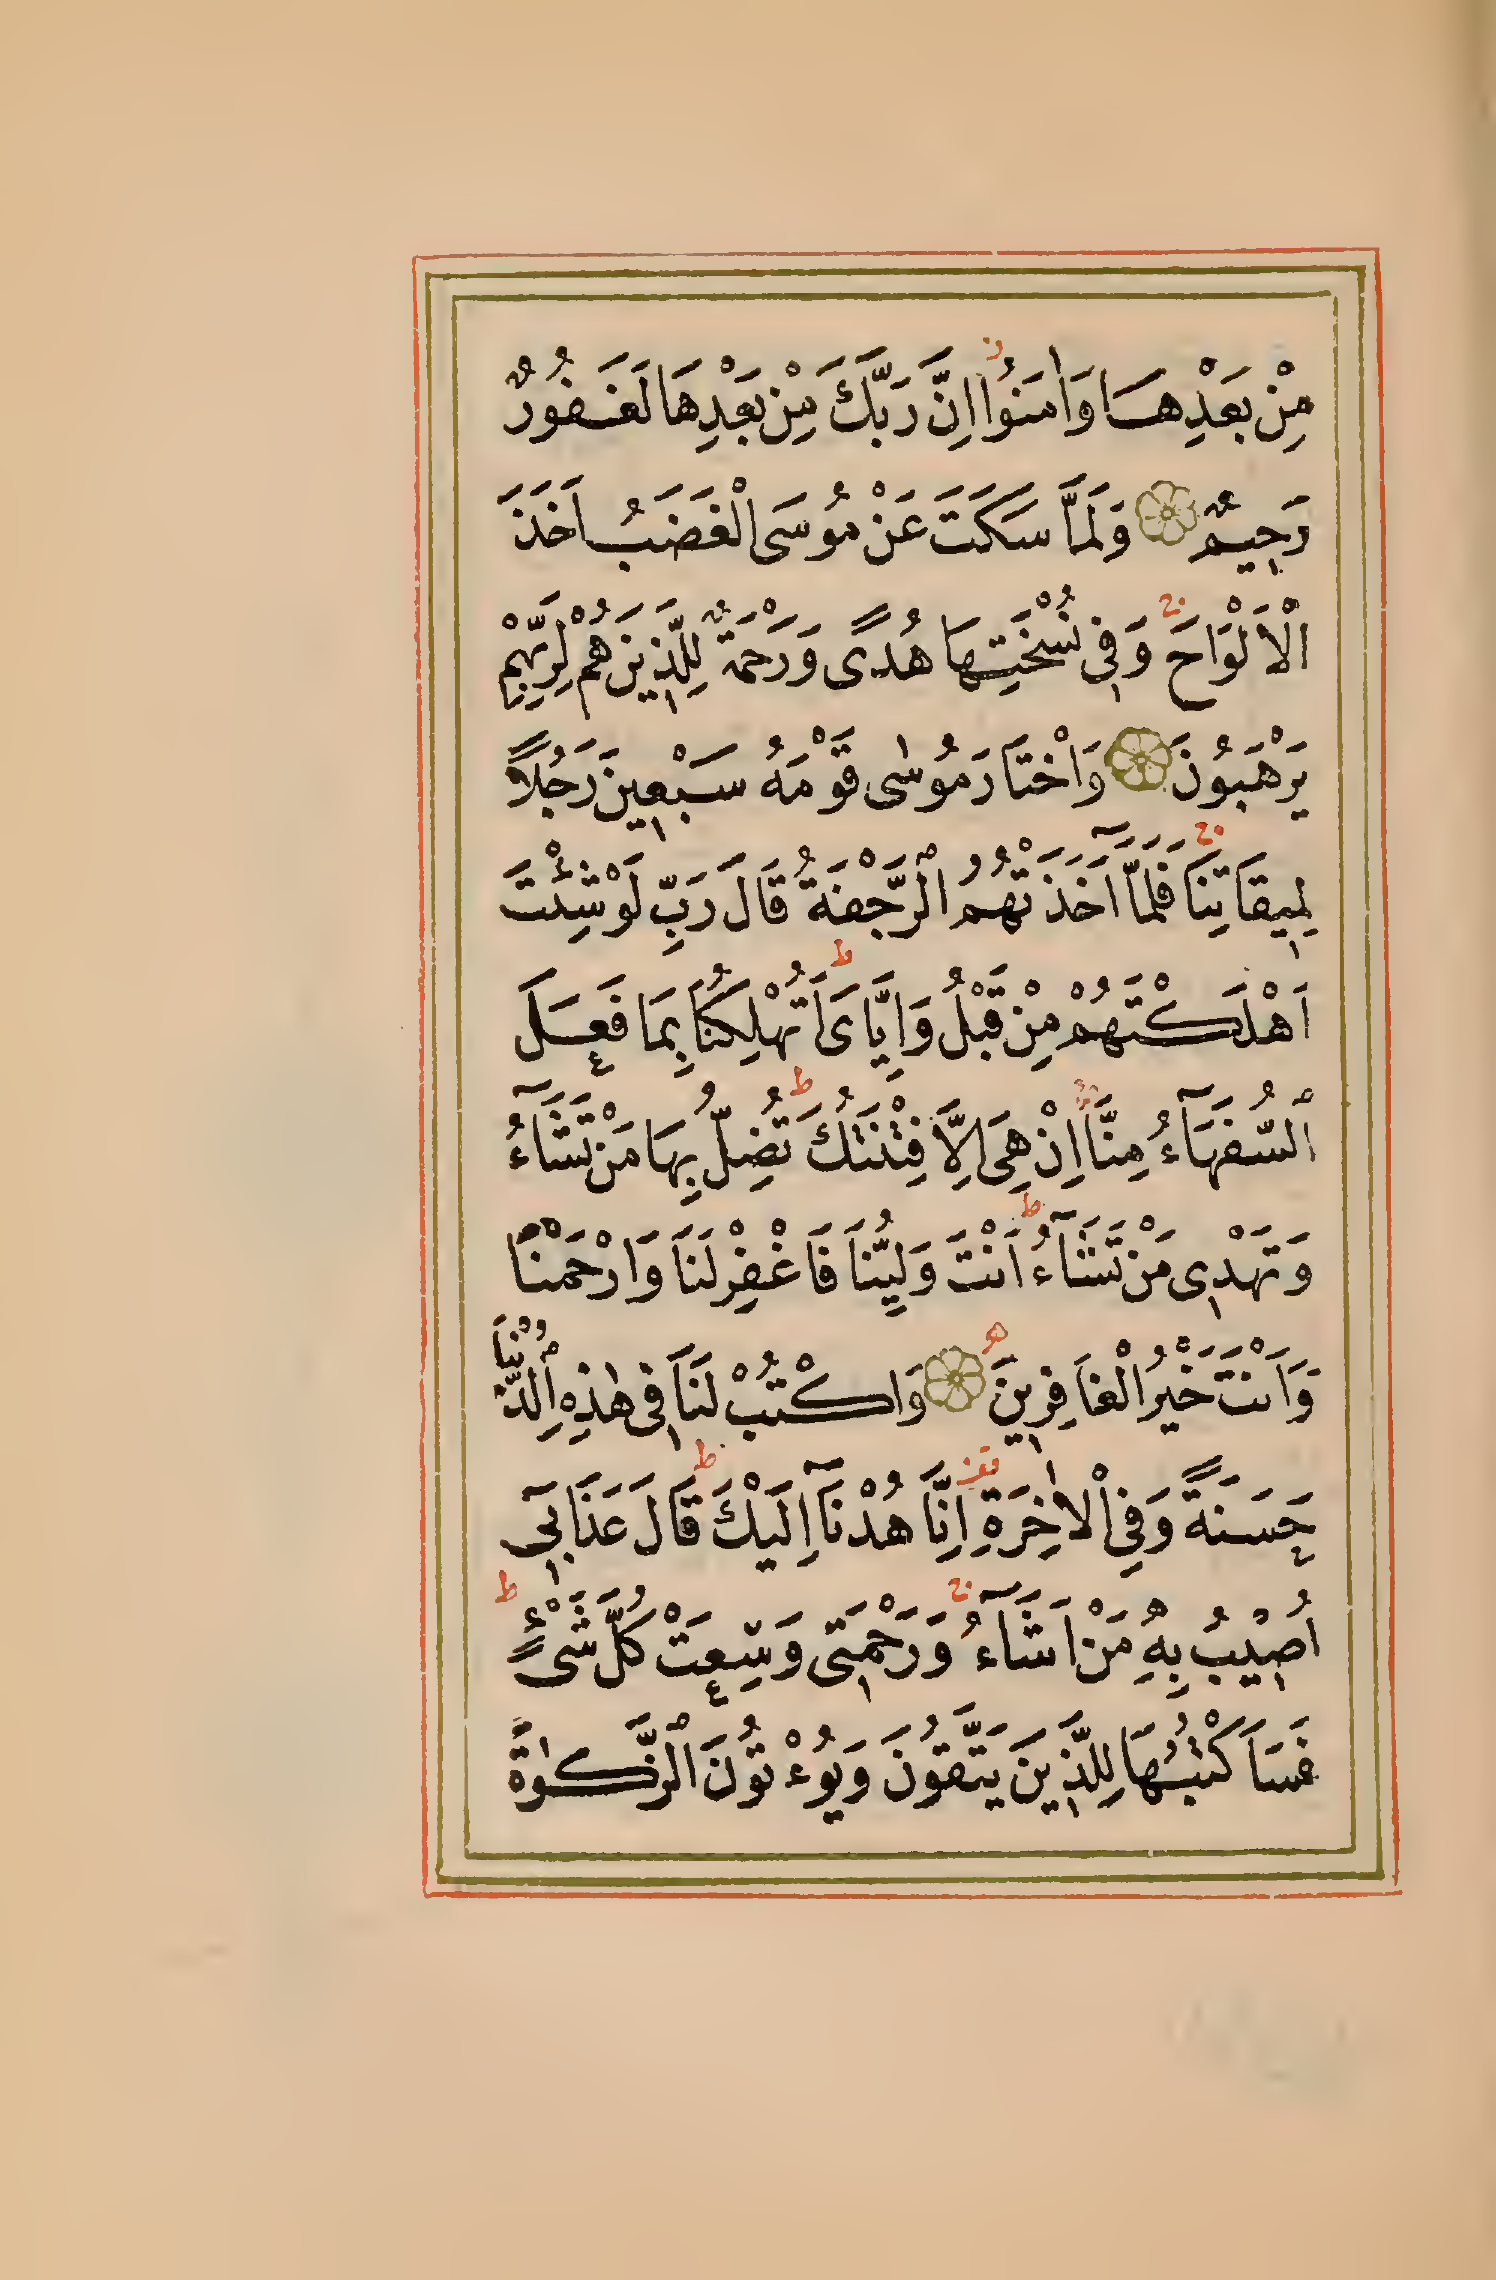 مِنْ بَعْدِهَا وَاٰمَنُوا اِنَّ رَبَّكَ مِنْ بَعْدِهَا لَغَفُورٌ
رَحِيمٌ وَلَمَّا سَكَتَ عَنْ مُوسَى الْغَضَبُ اَخَذَ
الْاَلْوَاحَ وَفِي نُسْخَتِهَا هُدًى وَرَحْمَةٌ لِلَّذِينَ هُمْ لِرَبِّهِمْ
يَرْهَبُونَ وَاخْتَارَ مُوسٰى قَوْمَهُ سَبْعِينَ رَجُلًا
لِمِيقَاتِنَا فَلَمَّا اَخَذَتْهُمُ الرَّجْفَةُ قَالَ رَبِّ لَوْ شِئْتَ
اَهْلَكْتَهُمْ مِنْ قَبْلُ وَاِيَّاىَ اَتُهْلِكُنَا بِمَا فَعَلَ
السُّفَهَآءُ مِنَّا اِنْ هِىَ اِلَّا فِتْنَتُكَ تُضِلُّ بِهَا مَنْ تَشَآءُ
وَتَهْدِى مَنْ تَشَآءُ اَنْتَ وَلِيُّنَا فَاغْفِرْ لَنَا وَارْحَمْنَا
وَاَنْتَ خَيْرُ الْغَافِرِينَ وَاكْتُبْ لَنَا فِى هٰذِهِ الدُّنْيَا
حَسَنَةً وَفِى الْاٰخِرَةِ اِنَّا هُدْنَآ اِلَيْكَ قَالَ عَذَابِىٓ
اُصِيْبُ بِهِ مَنْ اَشَآءُ وَرَحْمَتِى وَسِعَتْ كُلَّ شَىْءٍ
فَسَاَكْتُبُهَا لِلَّذِينَ يَتَّقُونَ وَيُؤْتُونَ الزَّكٰوةَ